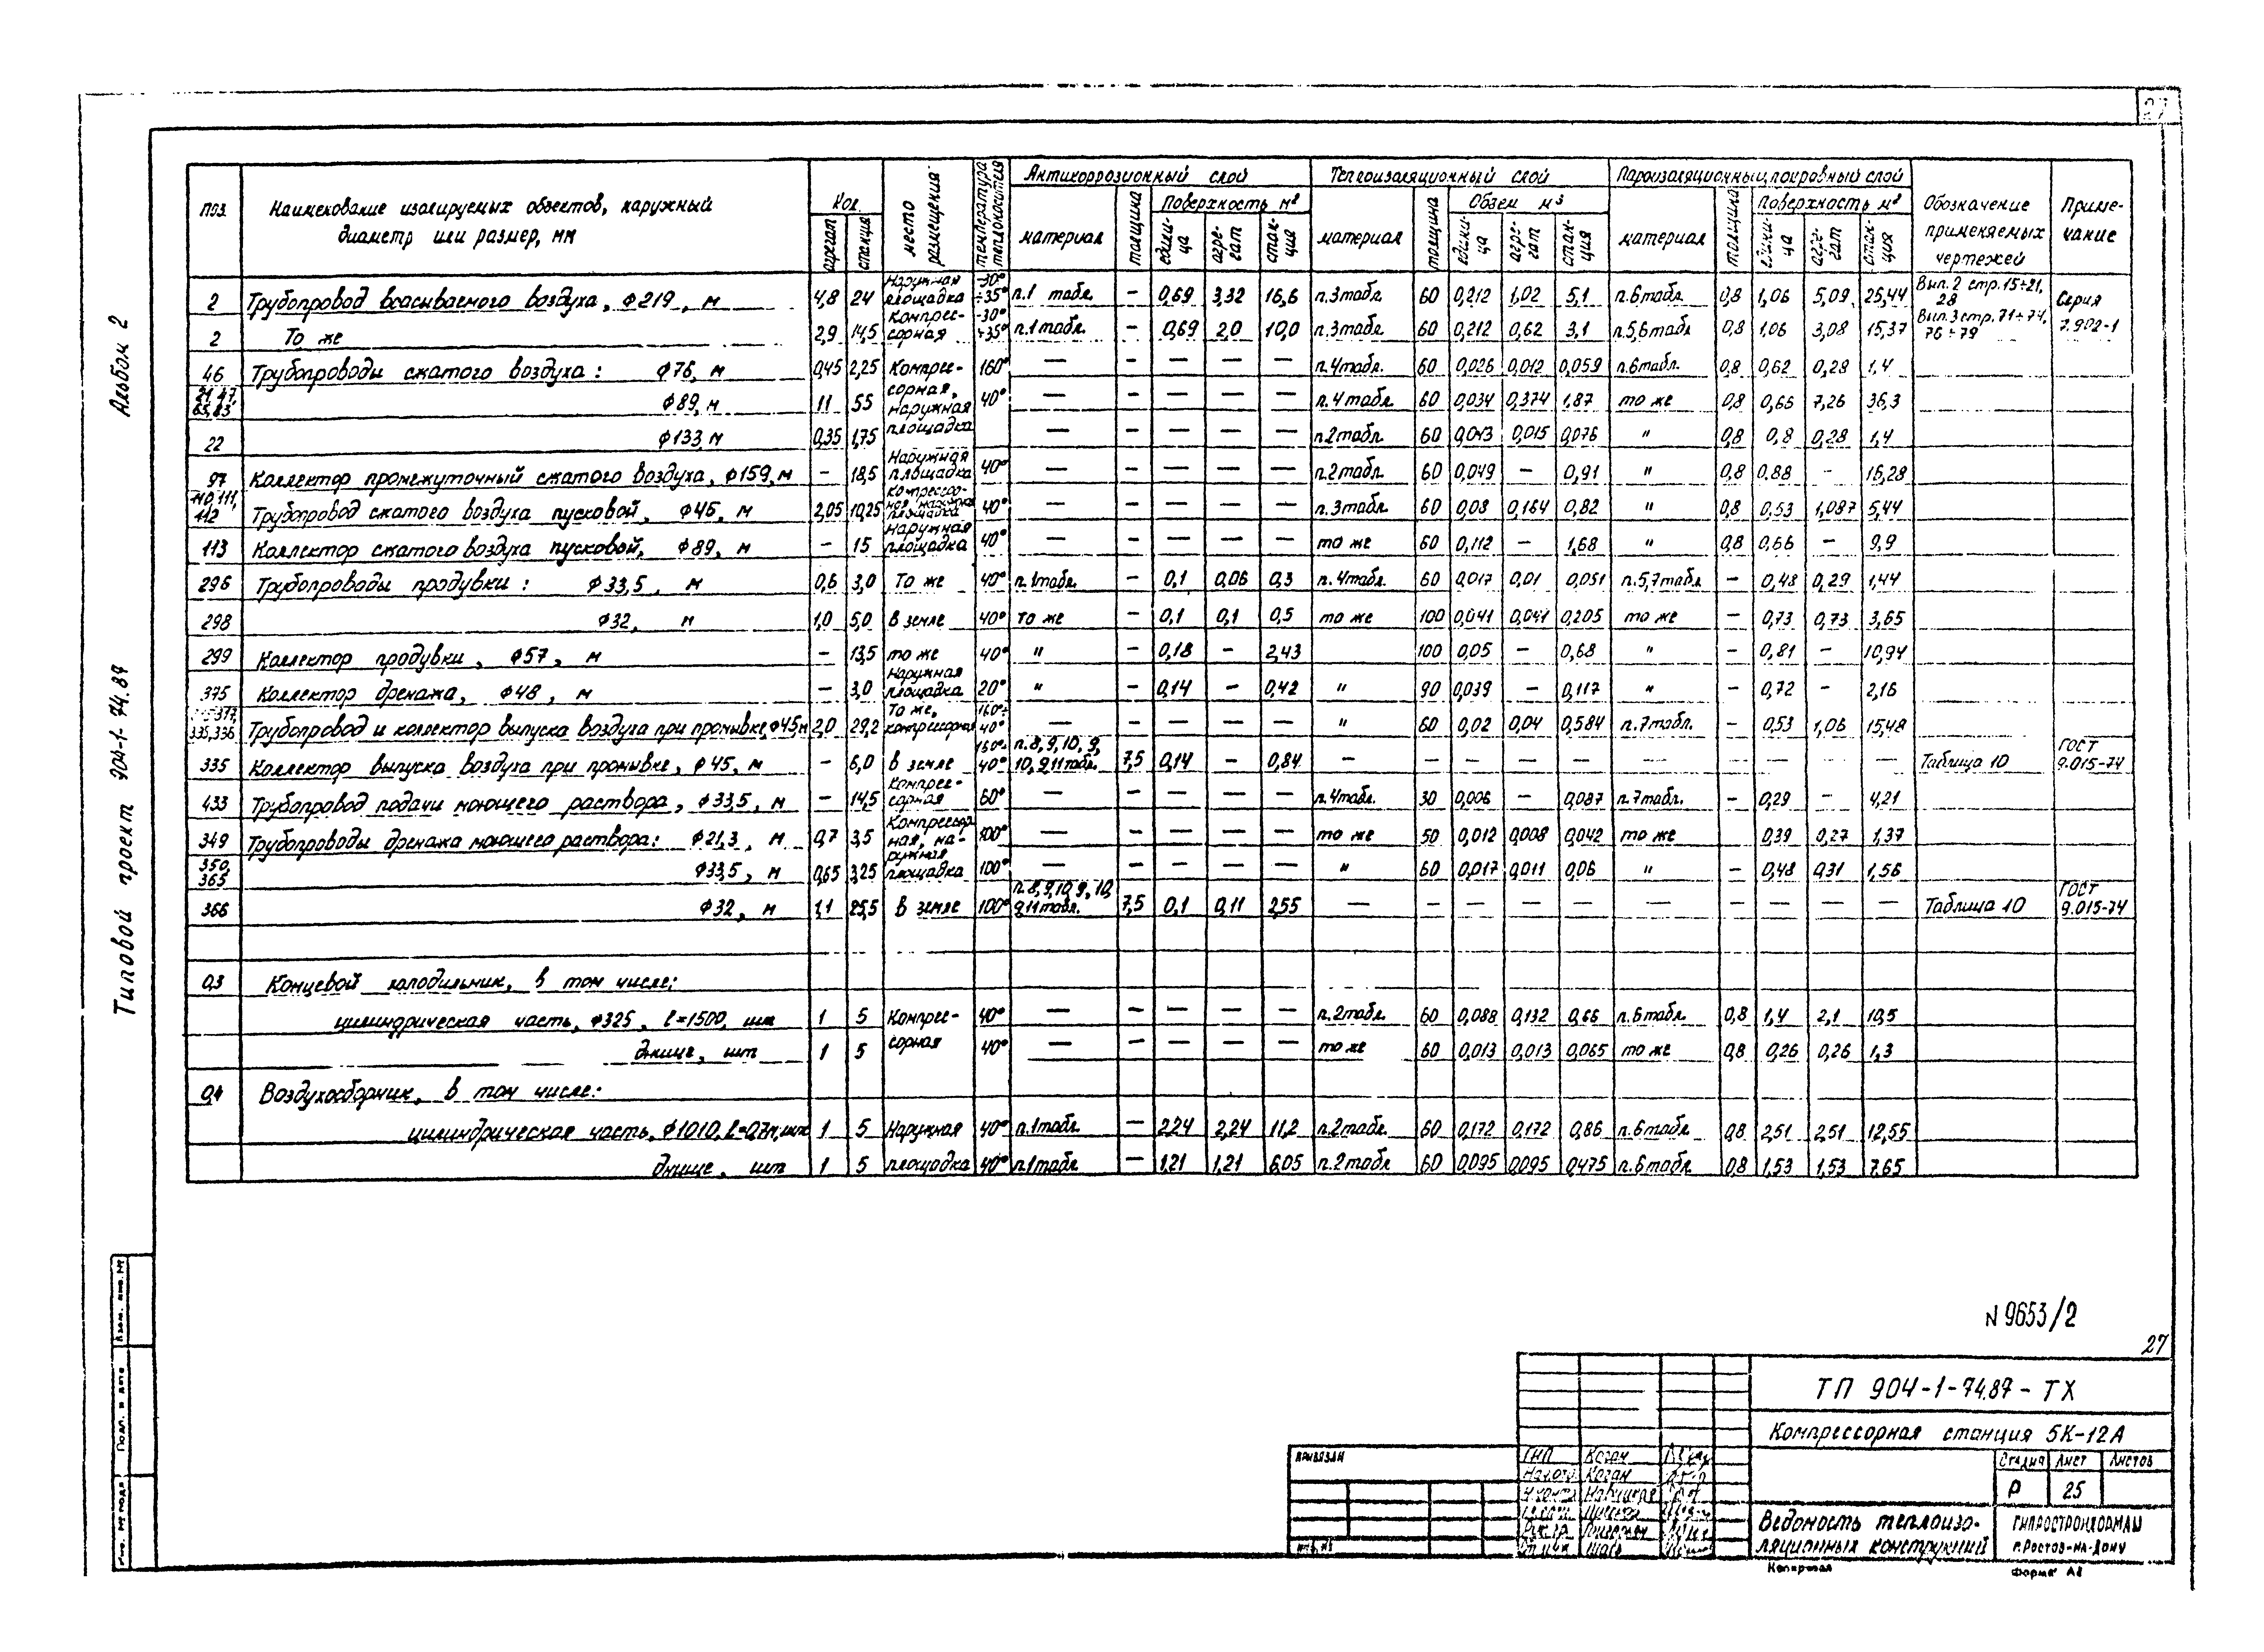 27
Альбом 2
Типовой проект 904-1-74.87
поз.
Наименование изолируемых объектов, наружный диаметр или размер, мм
Кол.
агрегат
станция
место размещения
температура теплоносителя
Антикоррозионный слой
материал
толщина
Поверхность м²
едини-ца
агре-гат
стан-ция
Теплоизоляционный слой
материал
толщина
Объем м³
едини-ца
агре-гат
стан-ция
Пароизоляционный, покровный слой
материал
толщина
Поверхность м²
едини-ца
агре-гат
стан-ция
Обозначение применяемых чертежей
Приме-чание
2 Трубопровод всасываемого воздуха, ф219, м 4,8 24 Наружная площадка -30° ÷35° п.1 табл. — 0,69 3,32 16,6 п.3табл. 60 0,212 1,02 5,1 п.6табл. 0,8 1,06 5,09 25,44 Вып. 2 стр. 15÷21, 28 Серия
2 То же 2,9 14,5 Компрес-сорная -30° ÷35° п.1табл. — 0,69 2,0 10,0 п.3табл. 60 0,212 0,62 3,1 п.5,6табл 0,8 1,06 3,08 15,37 Вып.3 стр. 71÷74, 76÷79 7.902-1
46 Трубопроводы сжатого воздуха: ф76, м 0,45 2,25 Компрес- 160° — — — — — п.4табл. 60 0,026 0,012 0,059 п.6табл. 0,8 0,62 0,28 1,4
65,83 ф89, м 11 55 сорная, наружная 40° — — — — — п.4табл. 60 0,034 0,374 1,87 то же 0,8 0,66 7,26 36,3
22 ф133, м 0,35 1,75 площадка — — — — — п.2табл. 60 0,043 0,015 0,076 " 0,8 0,8 0,28 1,4
97 Коллектор промежуточный сжатого воздуха, ф159, м — 18,5 Наружная площадка 40° — — — — — п.2табл. 60 0,049 — 0,91 " 0,8 0,88 - 16,28
110,111, 112 Трубопровод сжатого воздуха пусковой, ф45, м 2,05 10,25 компрессо-ная, наружная площадка 40° — — — — — п.3табл. 60 0,08 0,164 0,82 " 0,8 0,53 1,087 5,44
113 Коллектор сжатого воздуха пусковой, ф89, м — 15 наружная площадка 40° — — — — — то же 60 0,112 — 1,68 " 0,8 0,66 — 9,9
296 Трубопроводы продувки: ф33,5, м 0,6 3,0 То же 40° п.1табл. — 0,1 0,06 0,3 п.4табл. 60 0,017 0,01 0,051 п.5,7табл — 0,48 0,29 1,44
298 ф32, м 1,0 5,0 в земле 40° то же — 0,1 0,1 0,5 то же 100 0,041 0,041 0,205 то же — 0,73 0,73 3,65
299 Коллектор продувки, ф57, м — 13,5 то же 40° " — 0,18 — 2,43 100 0,05 — 0,68 " — 0,81 — 10,94
375 Коллектор дренажа, ф48, м — 3,0 Наружная площадка 20° " — 0,14 — 0,42 " 90 0,039 — 0,117 " — 0,72 — 2,16
335,336 Трубопровод и коллектор выпуска воздуха при промывке, ф45, м 2,0 29,2 То же, компрессорная 160°÷ 40° — — — — — " 60 0,02 0,04 0,584 п.7табл. — 0,53 1,06 15,48
335 Коллектор выпуска воздуха при промывке, ф45, м — 6,0 в земле 160°÷ 40° п.8,9,10,9, 10,9,11табл. 7,5 0,14 — 0,84 — — — — — — — — — — Таблица 10 ГОСТ 9.015-74
433 Трубопровод подачи моющего раствора, ф33,5, м — 14,5 Компрес-сорная 60° — — — — — п.4табл. 30 0,006 — 0,087 п.7табл. — 0,29 — 4,21
349 Трубопроводы дренажа моющего раствора: ф21,3, м 0,7 3,5 Компрессор-ная, на- 100° — — — — — то же 50 0,012 0,008 0,042 то же 0,39 0,27 1,37
350, 365 ф33,5, м 0,65 3,25 ружная площадка 100° — — — — — " 60 0,017 0,011 0,06 " — 0,48 0,31 1,56
366 ф32, м 1,1 25,5 в земле 100° п.8,9,10,9,10, 9,11табл. 7,5 0,1 0,11 2,55 — — — — — — — — — — Таблица 10 ГОСТ 9.015-74
03 Концевой холодильник, в том числе:
цилиндрическая часть, ф325, ℓ=1500, шт 1 5 Компрес- 40° — — — — — п.2табл. 60 0,088 0,132 0,66 п.6табл. 0,8 1,4 2,1 10,5
днище, шт 1 5 сорная 40° — — — — — то же 60 0,013 0,013 0,065 то же 0,8 0,26 0,26 1,3
04 Воздухосборник, в том числе:
цилиндрическая часть, ф1010, ℓ=0,7м, шт 1 5 Наружная 40° п.1табл. — 2,24 2,24 11,2 п.2табл. 60 0,172 0,172 0,86 п.6табл. 0,8 2,51 2,51 12,55
днище, шт 1 5 площадка 40° п.1табл — 1,21 1,21 6,05 п.2табл 60 0,095 0,095 0,475 п.6табл 0,8 1,53 1,53 7,65
N 9653/2
27
ТП 904-1-74.87 - ТХ
Компрессорная станция 5К-12А
Привязан
ГИП Коган
Нач.отд Коган
Стадия Лист Листов
Р 25
Ведомость теплоизо-
ляционных конструкций
Гипростройдормаш
г.Ростов-на-Дону
Копировал
Формат А2
Взам. инв. №
Подп. и дата
Инв. № подл